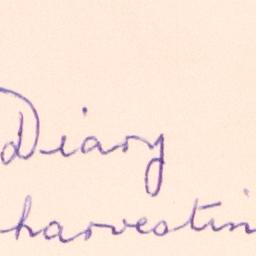 Diary
harvestin